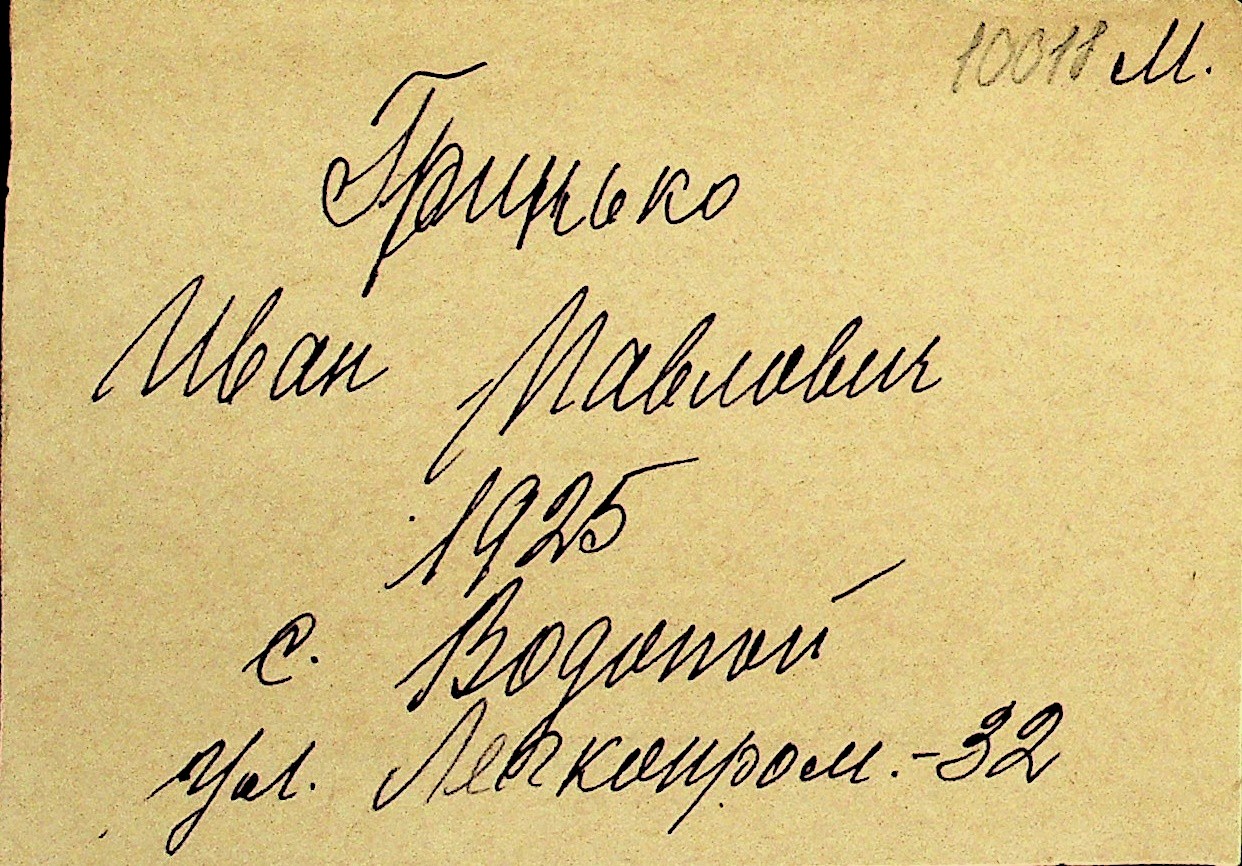 10018 М.
Гринько
Иван Павлович
1925
с. Водопой
ул. Легкопром.-32